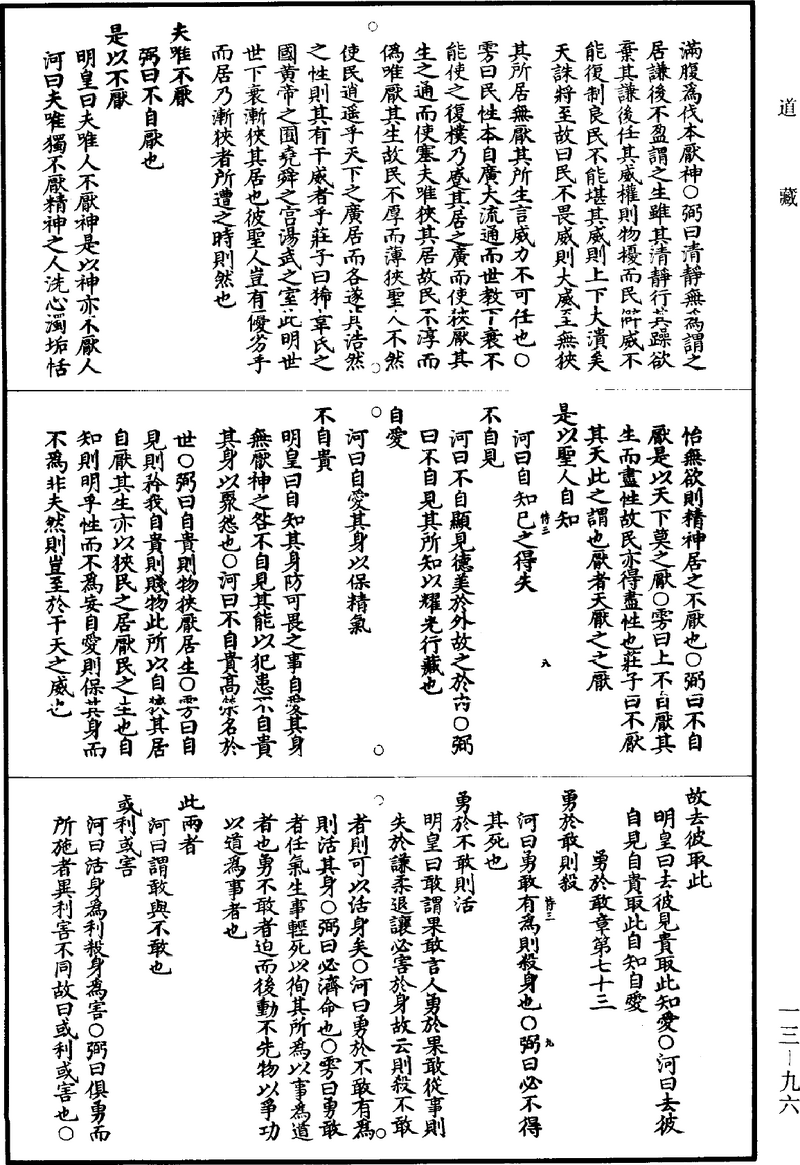 道藏
滿腹為伐本厭神○弼曰清靜無為謂之
居謙後不盈謂之生雖其清靜行其躁欲
棄其謙後任其威權則物擾而民僻威不
能復制良民不能堪其威則上下大潰矣
天誅將至故曰民不畏威則大威至無狹
其所居無厭其所生言威力不可任也○
雱曰民性本自廣大流通而世教下衰不
能使之復樸乃盛其居之廣而使狹厭其
生之通而使塞夫唯狹其居故民不淳而
偽唯厭其生故民不厚而薄狹聖人不然
使民逍遥乎天下之廣居而各遂其浩然
之性則其有干威者乎莊子曰狶韋氏之
國黄帝之囿堯舜之宫湯武之室此明世
世下衰漸狹其居也彼聖人豈有優劣乎
而居乃漸狹者所遭之時則然也
夫唯不厭
弼曰不自厭也
是以不厭
明皇曰夫唯人不厭神是以神亦不厭人
河曰夫唯獨不厭精神之人洗心濁垢恬
怡無欲則精神居之不厭也○弼曰不自
厭是以天下莫之厭○雱曰上不自厭其
生而盡性故民亦得盡性也莊子曰不厭
其天此之謂也厭者天厭之之厭
是以聖人自知
河曰自知己之得失
不自見
河曰不自顯見德美於外故之於内○弼
曰不自見其所知以耀光行藏也
自愛
河曰自愛其身以保精氣
不自貴
明皇曰自知其身防可畏之事自愛其身
無厭神之咎不自見其能以犯患不自貴
其身以聚怨也○河曰不自貴高榮名於
世○弼曰自貴則物狹厭居生○雱曰自
見則矜我自貴則賤物此所以自狹其居
自厭其生亦以狹民之居厭民之生也自
知則明乎性而不為妄自愛則保其身而
不為非夫然則豈至於干天之威也
故去彼取此
明皇曰去彼見貴取此知愛○河曰去彼
自見自貴取此自知自愛
勇於敢章第七十三
勇於敢則殺
河曰勇敢有為則殺身也○弼曰必不得
其死也
勇於不敢則活
明皇曰敢謂果敢言人勇於果敢從事則
失於謙柔退讓必害於身故云則殺不敢
者則可以活身矣○河曰勇於不敢有為
則活其身○弼曰必濟命也○雱曰勇敢
者任氣生事輕死以徇其所為以事為道
者也勇不敢者迫而後動不先物以爭功
以道為事者也
此兩者
河曰謂敢與不敢也
或利或害
河曰活身為利殺身為害○弼曰俱勇而
所施者異利害不同故曰或利或害也○
一三—九六